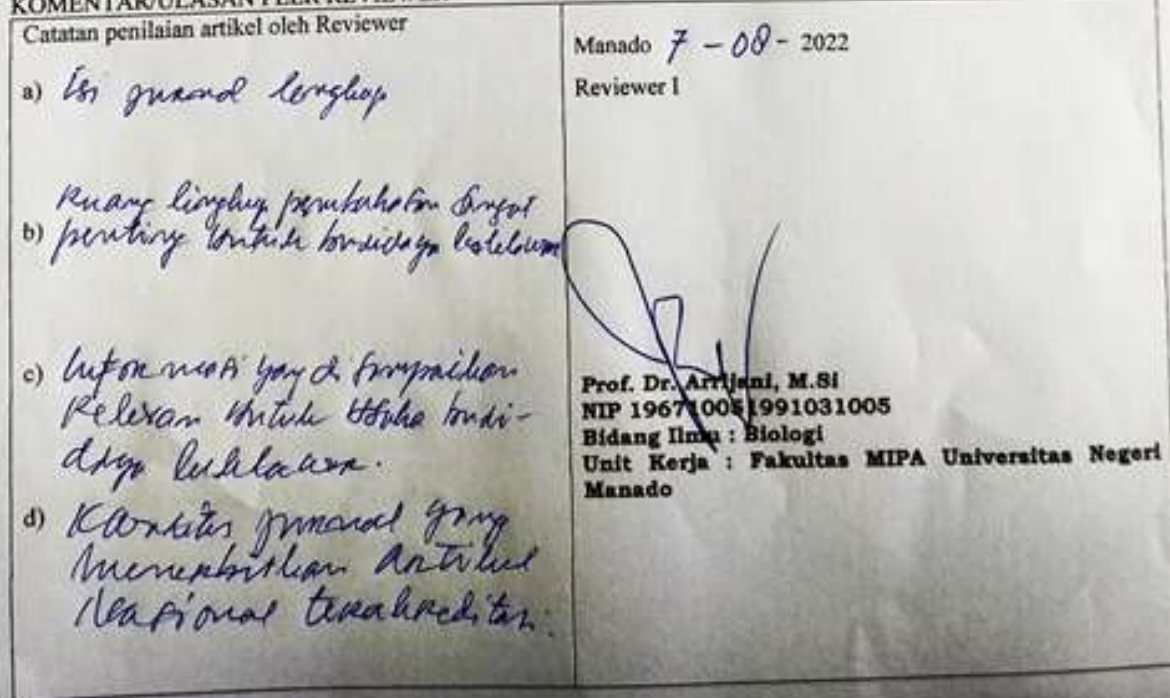 KOMENTAR/ULASAN PEER REVIEWER
Catatan penilaian artikel oleh Reviewer
a) Isi jurnal lengkap
Ruang lingkup pembahasan sangat
b) penting untuk budidaya
c) Informasi yang disampaikan
Relevan untuk usaha budi-
daya
d) Kualitas jurnal yang
menerbitkan artikel
Nasional terakreditasi.
Manado 7 - 08 - 2022
Reviewer I
Prof. Dr. Arrijani, M.Si
NIP 196710051991031005
Bidang Ilmu : Biologi
Unit Kerja : Fakultas MIPA Universitas Negeri
Manado